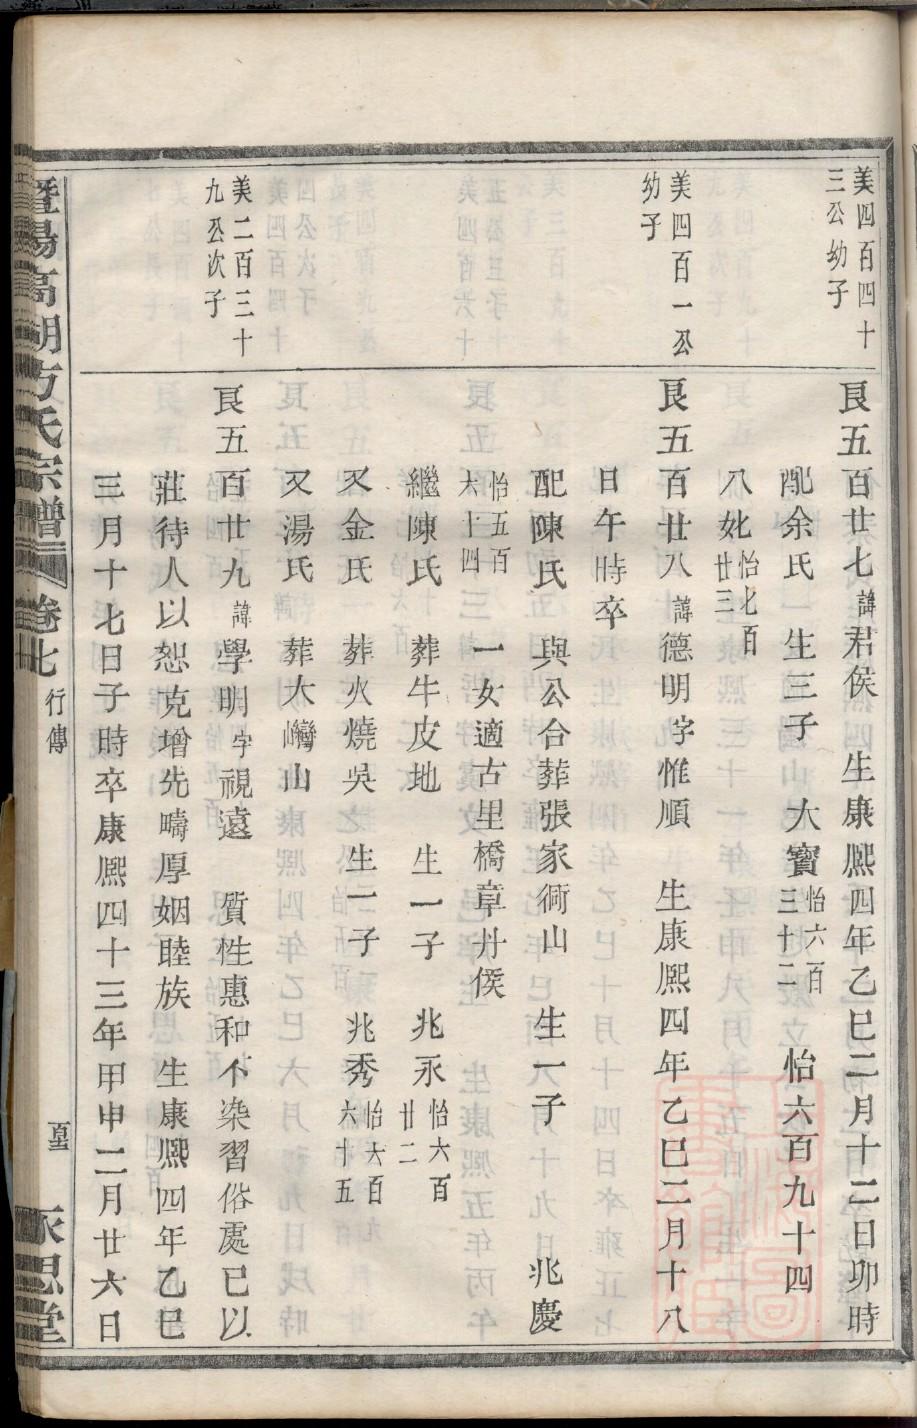 美四百四十
三公幼子
艮五百廿七諱君侯 生康熙四年乙巳二月十二日卯時
配余氏 生三子 大寳怡六百三十二 怡六百九十四
八妣怡七百廿三
美四百一公
幼子
艮五百廿八諱德明字惟順 生康熙四年乙巳二月十八
日午時卒
配陳氏 與公合葬張家衕山 生一子 兆慶
怡五百六十四 一女適古里橋章丹侯
繼陳氏 葬牛皮地 生一子 兆永怡六百廿二
又金氏 葬火燒吳 生一子 兆秀怡六百六十五
又湯氏 葬大巒山
美二百三十
九公次子
艮五百廿九諱學明字視遠 質性惠和不染習俗處已以
莊待人以恕克增先疇厚姻睦族 生康熙四年乙巳
三月十七日子時卒康熙四十三年甲申二月廿六日
暨陽高湖方氏宗譜 卷七 行傳 永思堂